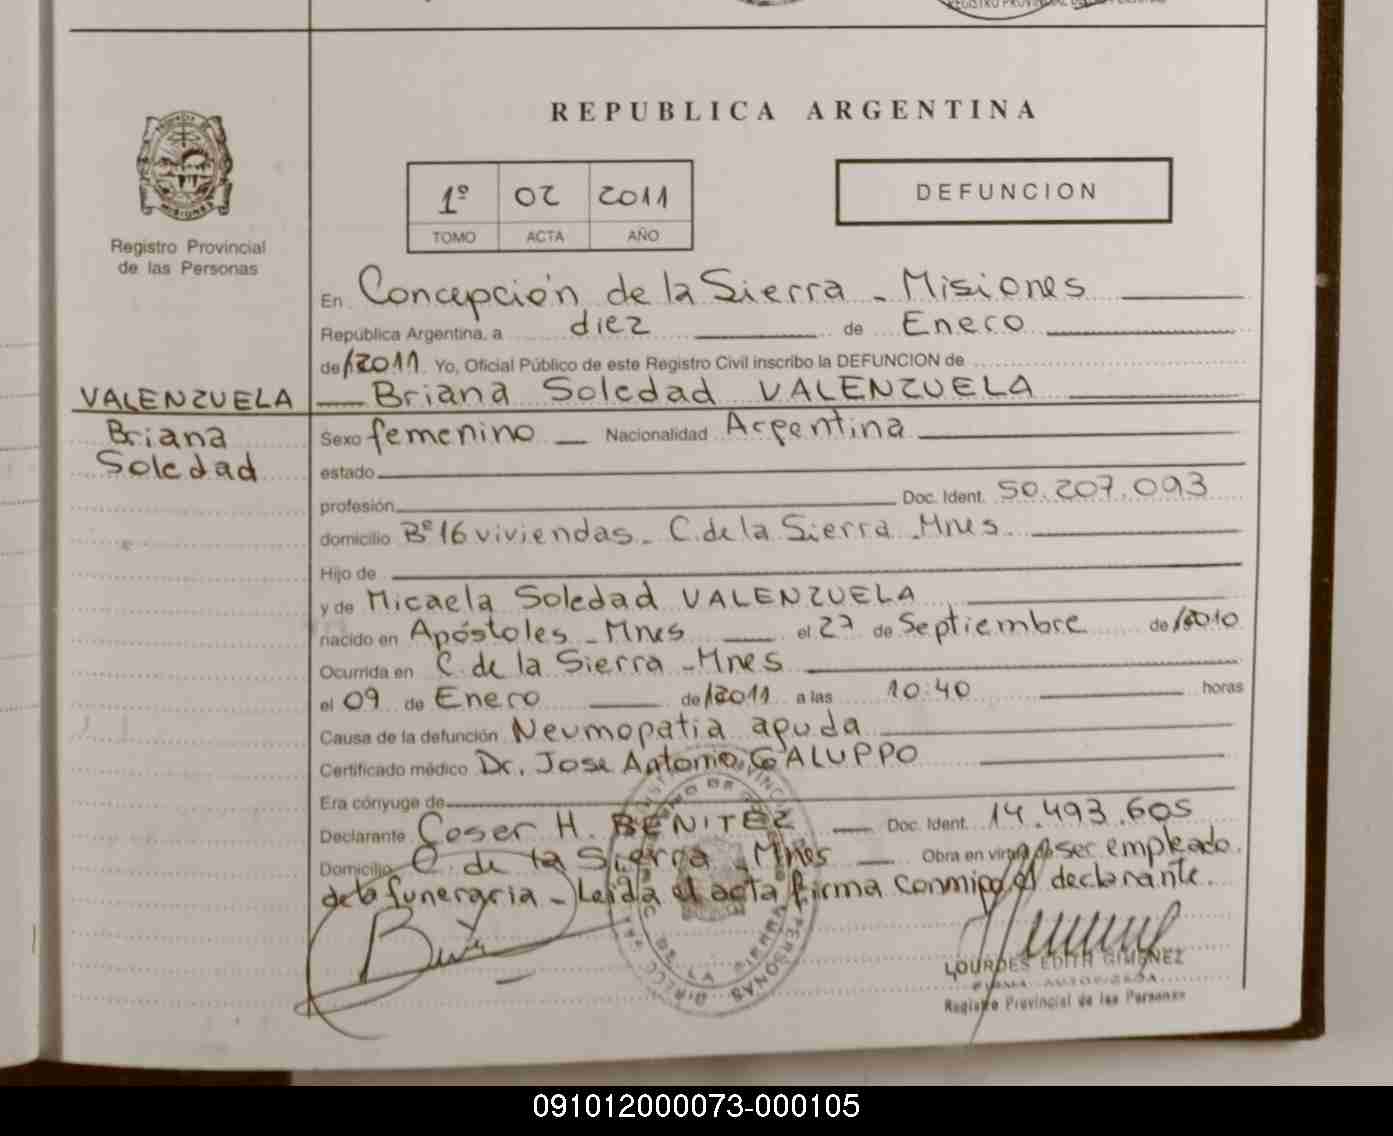 REPUBLICA ARGENTINA
1º 02 2011
TOMO ACTA AÑO
DEFUNCION
Registro Provincial
de las Personas
En Concepción de la Sierra - Misiones
República Argentina, a diez de Enero
de 2011 Yo, Oficial Público de este Registro Civil inscribo la DEFUNCION de
VALENZUELA Briana Soledad VALENZUELA
Briana
Soledad
Sexo femenino Nacionalidad Argentina
estado
profesión Doc. Ident. 50.207.093
domicilio Bº 16 viviendas - C. de la Sierra - Mnes
Hijo de
y de Micaela Soledad VALENZUELA
nacido en Apóstoles - Mnes el 27 de Septiembre de 2010
Ocurrida en C. de la Sierra - Mnes
el 09 de Enero de 2011 a las 10:40 horas
Causa de la defunción Neumopatia aguda
Certificado médico Dr. Jose Antonio GALUPPO
Era cónyuge de
Declarante Coser H. BENITEZ Doc. Ident. 14.493.605
Domicilio C. de la Sierra - Mnes Obra en virtud de ser empleado
de la funeraria - Leída el acta firma conmigo el declarante.
LOURDES EDITH GIMENEZ
FIRMA AUTORIZADA
Registro Provincial de las Personas
091012000073-000105